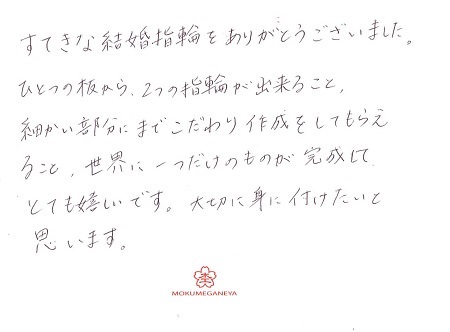 すてきな結婚指輪をありがとうございました。
ひとつの板から、2つの指輪が出来ること、
細かい部分にまでこだわり作成をしてもらえ
ること、世界に一つだけのものが完成して
とても嬉しいです。大切に身に付けたいと
思います。
MOKUMEGANEYA